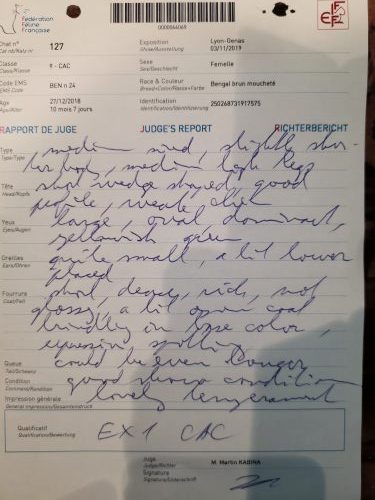 Fédération
Féline
Française
*0000064069*
FFF
Chat n° 127 Exposition Lyon-Genas
Cat nb/Katz nr Show/Ausstellung 03/11/2019
Classe 9 - CAC Sexe Femelle
Class/Klasse Sex/Geschlecht
Code EMS BEN n 24 Race & Couleur Bengal brun moucheté
EMS Code Breed+Color/Rasse+Farbe
Age 27/12/2018 Identification 250268731917575
Age/Alter 10 mois 7 jours Identification/Identifizierung
RAPPORT DE JUGE JUDGE'S REPORT RICHTERBERICHT
Type medium sized, slightly shor-
Type/Type ter body, medium high legs
Tête short wedge shaped, good
Head/Kopfs profile, weak chin
Yeux large, oval, dominant,
Eyes/Augen yellowish green
Oreilles quite small, a bit lower
Ears/Ohren placed
Fourrure short, dense, rich, not
Coat/Fell glossy, a bit open coat
brindley on base color,
expressive spotting
Queue could be even longer
Tail/Schwanz
Condition good show condition
Comment/Kondition
Impression générale lovely temperament
General impression/Gesamteindruck
Qualificatif EX 1 CAC
Qualification/Bewertung
Juge M. Martin KABINA
Judge/Richter
Signature
Signature/Unterschrift